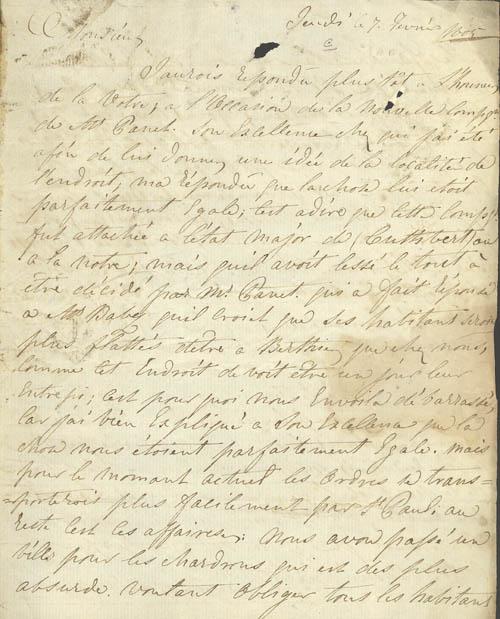 Monsieur, Jeudi le 7. Fevrié 1805
Jaurois Repondu plus tôt a l'honneur
de la Votre, a l'Occasion de la Nouvelle Compgn
de Mr Panet. Son Excellence chez qui j'ai été
afin de lui donner une idée de la localité de
l'endroit, ma Répondu que la chose lui etoit
parfaitement Egale; Cest adire que cette Comp
fut attachée a l'état major de Cuthbert ou
a la notre; mais quil avoit lessé le tout à
être décidé par Mr Panet. qui a fait réponse
a Mr Babey quil croit que ses habitant seron
plus flattés detre a Berthier que chez nous,
Comme cet Endroit devoit etre un jour leur
Entrepos; cest pour quoi nous Envoila débarrassé
Car j'ai bien Expliqué a Son Excellence que la
chose nous étoient parfaitement Egale. mais
pour le moment actuel les Ordres se trans=
=porterois plus facilement par St Paul: au
Reste cest les affaires. Nous avon passé un
bille pour les chardrons qui est des plus
absurde. voulant Obliger tous les habitant